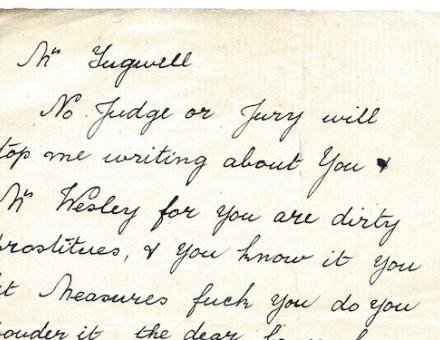 Mrs Tugwell
No Judge or Jury will
top me writing about You &
Mrs Wesley for You are dirty
prostitues, & You know it You
it Measures fuck You do You
ouder it the dear